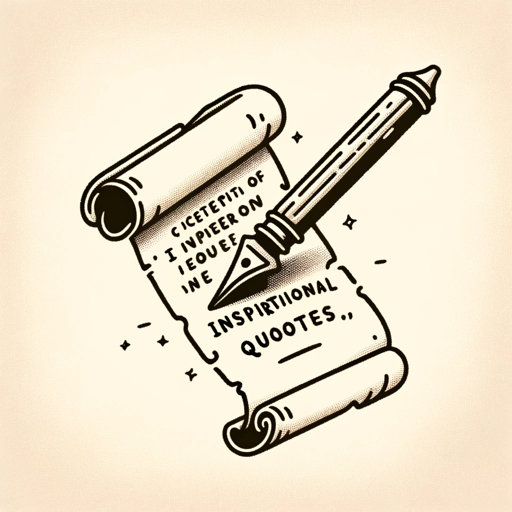 CICETEPITI OF
I INPIEER ON
IEOUE E
INE
INSPIRTIIONAL
QUOOTES.,